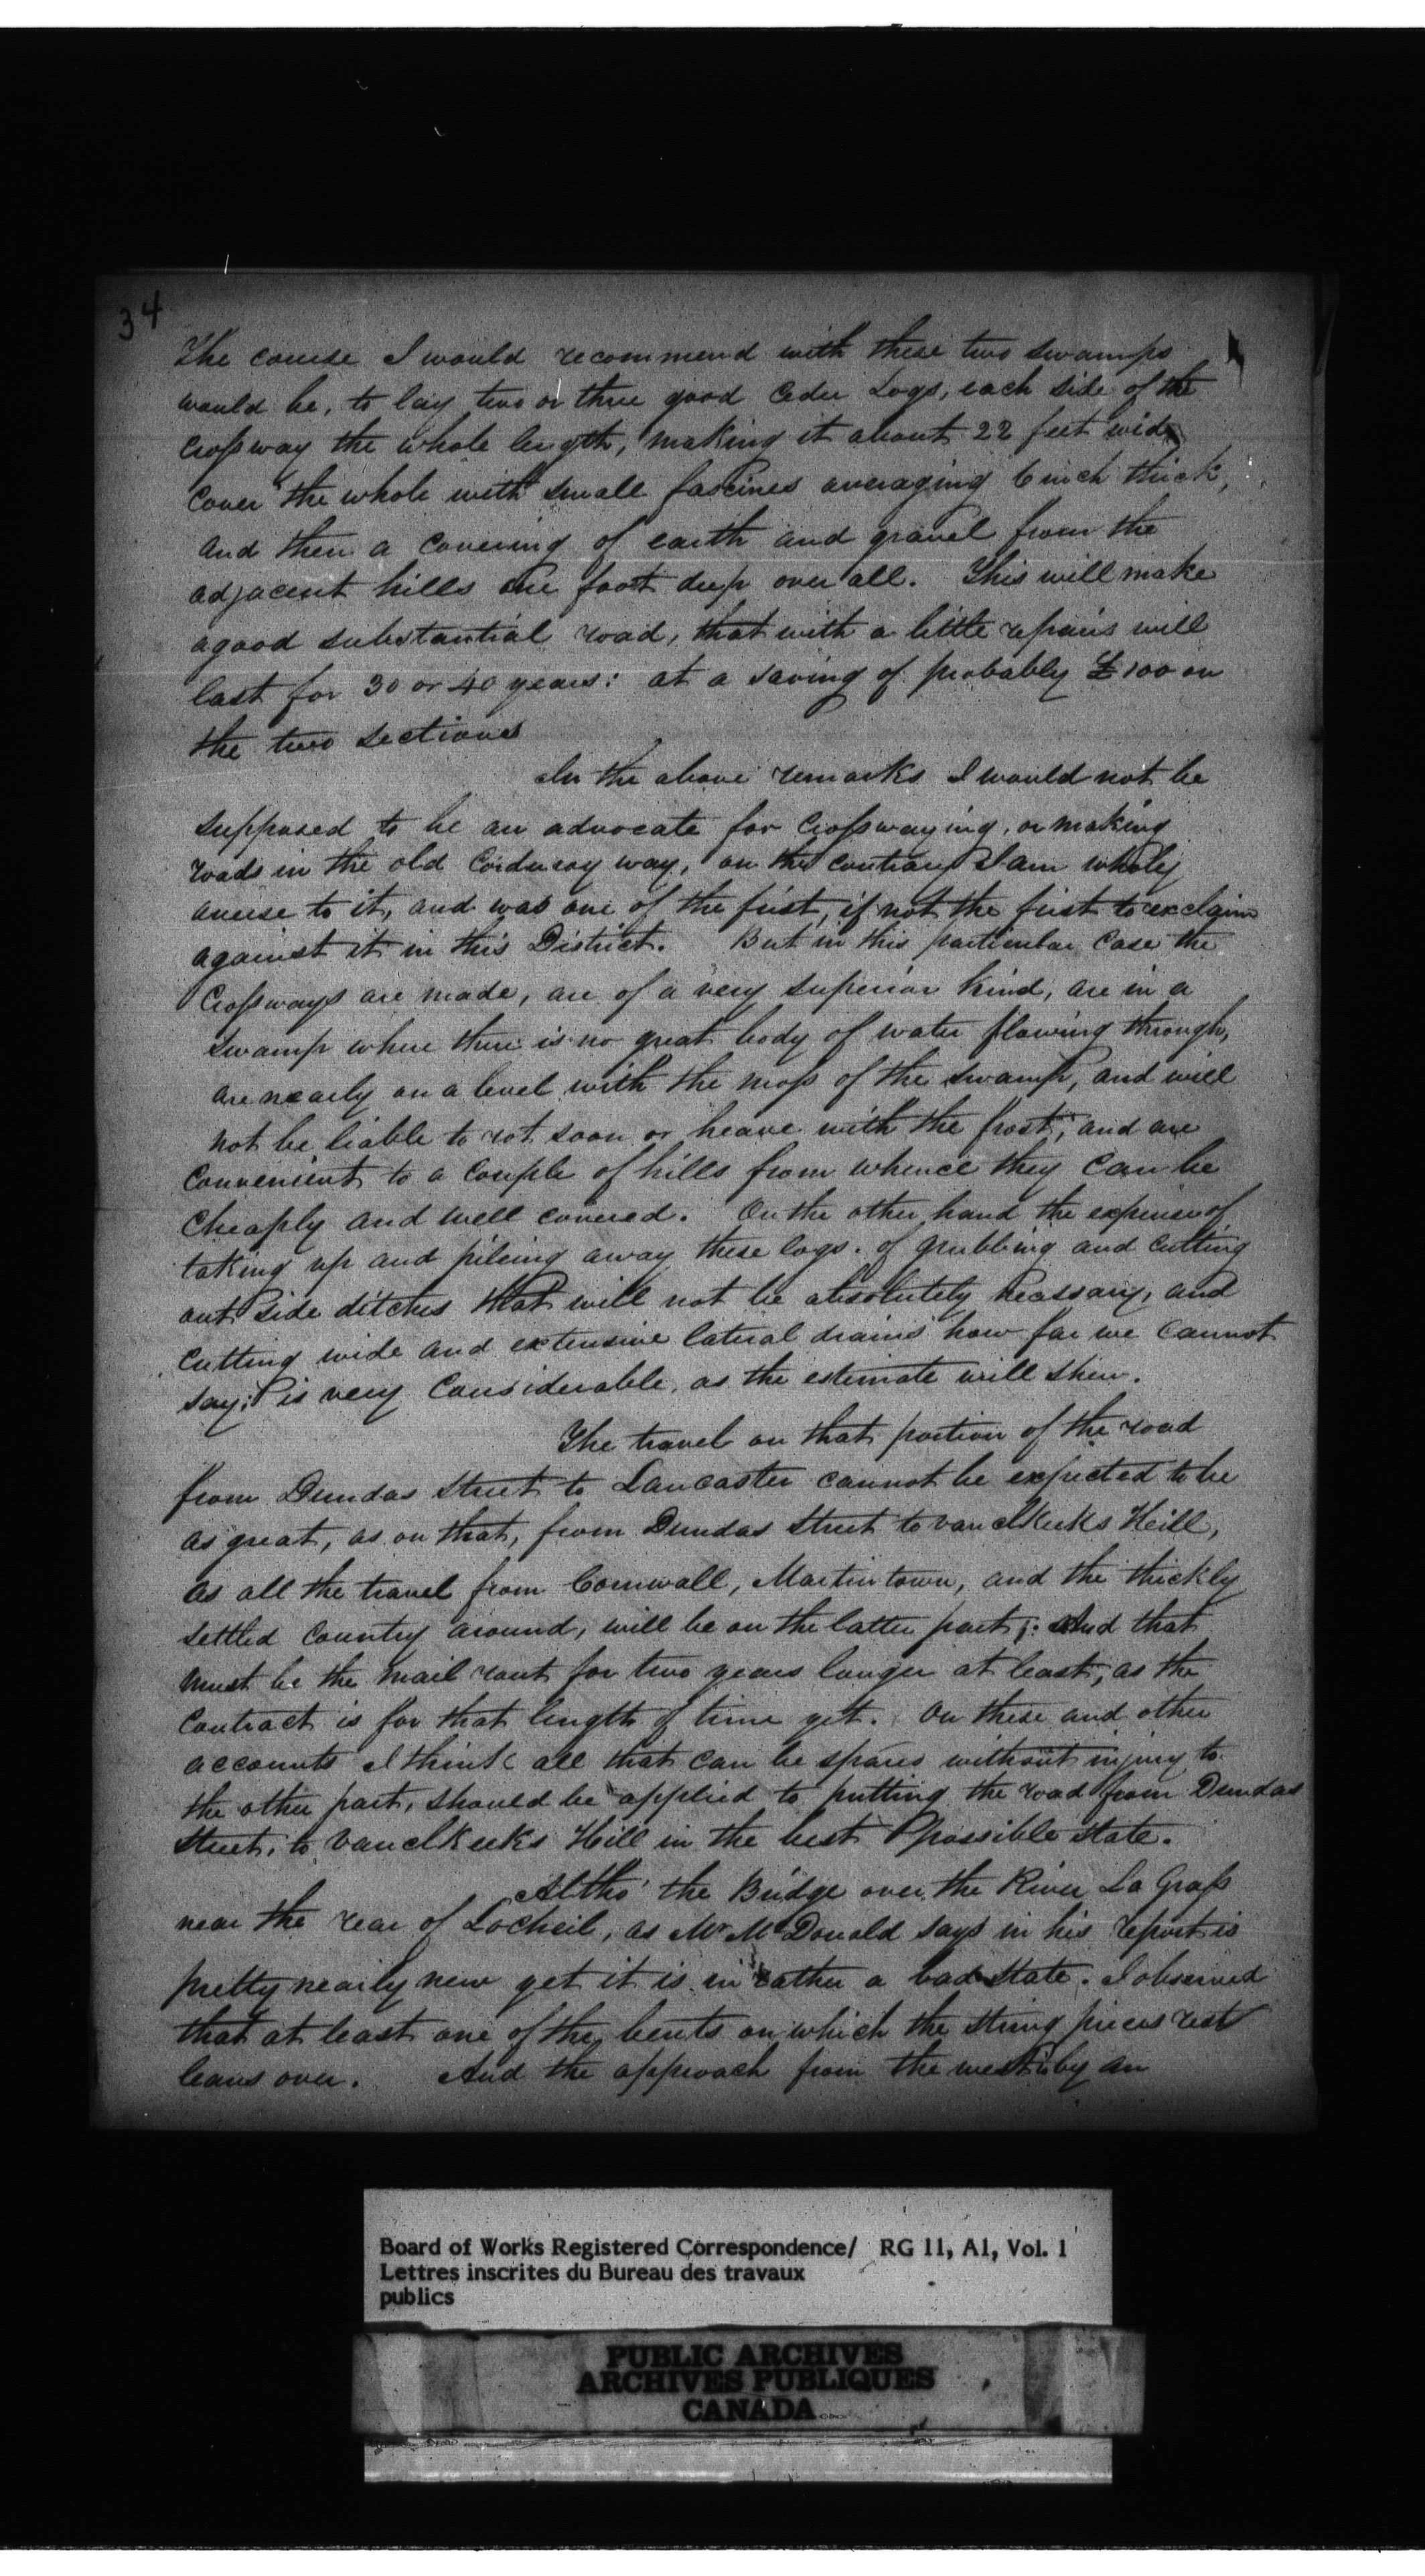 34
The course I would recommend with these two swamps
would be, to lay two or three good Ceder Logs, each side of the
Crossway the whole length, making it about 22 feet wide
Cover the whole with small fascines averaging 6 inch thick,
and then a covering of earth and gravel from the
adjacent hills one foot deep over all. This will make
a good substantial road, that with a little repairs will
last for 30 or 40 years: at a saving of probably £100 on
the two sections
In the above remarks I would not be
supposed to be an advocate for Crosswaying, or making
roads in the old Corduroy way, on the contrary I am wholy
averse to it, and was one of the first, if not the first to exclaim
against it in this District. But in this particular Case the
Crossways are made, are of a very superior kind, are in a
swamp where there is no great body of water flowing through,
are nearly on a level with the moss of the swamp, and will
not be liable to rot soon or heave with the frost; and are
Convenient to a Couple of hills from whence they Can be
Cheaply and well covered. On the other hand the expense of
taking up and pileing away these logs. of grubbing and Cutting
out side ditches that will not be absolutely necessary, and
Cutting wide and extensive lateral drains how far we Cannot
say; is very Considerable, as the estimate will shew.
The travel on that portion of the road
from Dundas Street to Lancaster cannot be expected to be
as great, as on that, from Dundas Street to vanclKeeks Hill,
as all the travel from Cornwall, Martintown, and the thickly
settled Country around, will be on the latter part; And that
must be the mail rout for two years longer at least, as the
Contract is for that length of time yet. On these and other
accounts I think all that can be spared without injury to
the other part, should be applied to putting the road from Dundas
Street, to VanclKeeks Hill in the best possible state.
Altho' the Bridge over the River La Grass
near the rear of Locheil, as Mr McDonald says in his report is
pretty nearly new yet it is in rather a bad state. I observed
that at least one of the bents on which the string pieces rest
leans over. And the approach from the west is by an
Board of Works Registered Correspondence/ RG 11, A1, Vol. 1
Lettres inscrites du Bureau des travaux
publics
PUBLIC ARCHIVES
ARCHIVES PUBLIQUES
CANADA